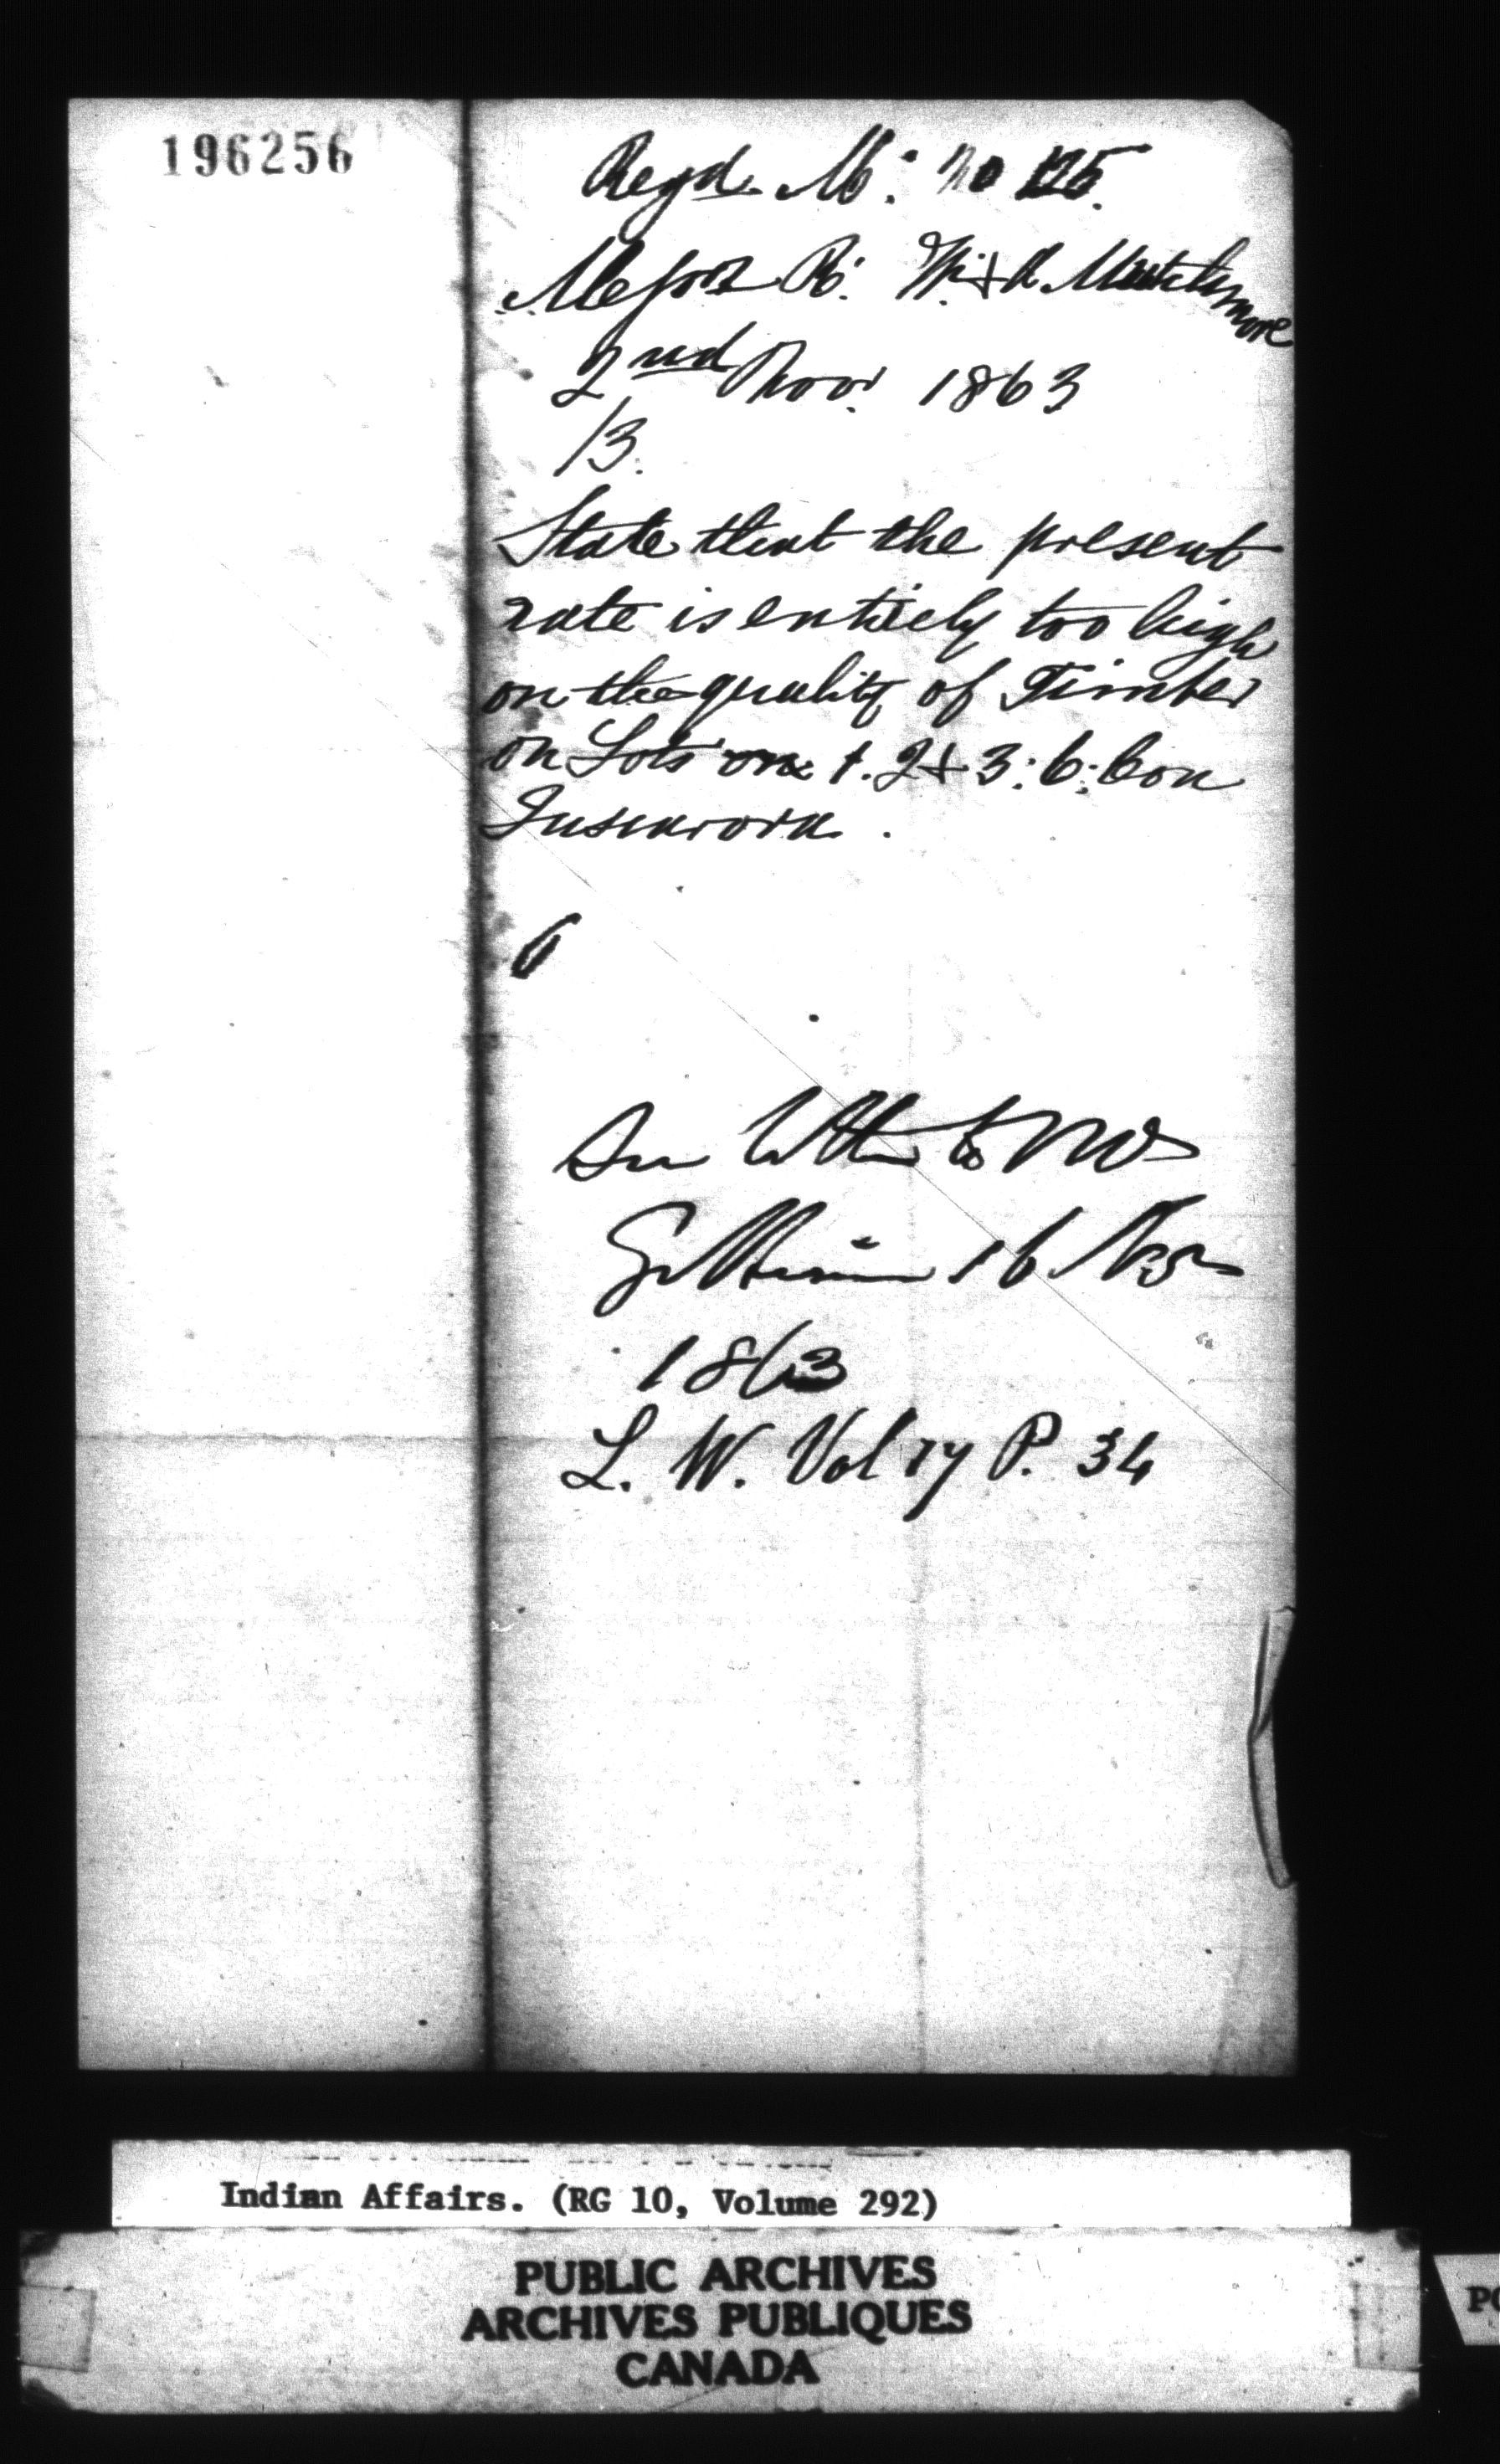 196256
Regd. M: no 125.
Messrs R. W. & R. Mutchmore
2nd Nov. 1863
/3.
State that the present
rate is entirely too high
on the quality of Timber
on Lots 1. 2 & 3: 6: Con
Tuscarora.
6
See letter to Mr
Gilkison 16 Nov
1863
L. W. Vol 17 P. 34
Indian Affairs. (RG 10, Volume 292)
PUBLIC ARCHIVES
ARCHIVES PUBLIQUES
CANADA